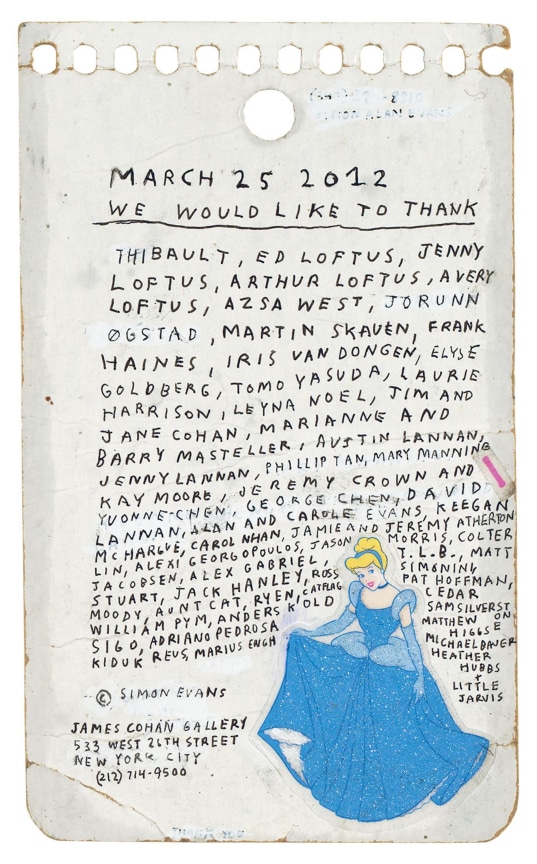 MARCH 25 2012
WE WOULD LIKE TO THANK
THIBAULT, ED LOFTUS, JENNY
LOFTUS, ARTHUR LOFTUS, AVERY
LOFTUS, AZSA WEST, JORUNN
ØGSTAD, MARTIN SKAUEN, FRANK
HAINES, IRIS VAN DONGEN, ELYSE
GOLDBERG, TOMO YASUDA, LAURIE
HARRISON, LEYNA NOEL, JIM AND
JANE COHAN, MARIANNE AND
BARRY MASTELLER, AUSTIN LANNAN,
JENNY LANNAN, PHILLIP TAN, MARY MANNING
KAY MOORE, JEREMY CROWN AND
YVONNE CHEN, GEORGE CHEN, DAVID
LANNAN, ALAN AND CAROLE EVANS, KEEGAN
MCHARGUE, CAROL NHAN, JAMIE AND JEREMY ATHERTON
LIN, ALEXI GEORGOPOULOS, JASON MORRIS, COLTER
JACOBSEN, ALEX GABRIEL, T.L.B., MATT
STUART, JACK HANLEY, ROSS SIMONINI,
MOODY, AUNT CAT, RYEN, CATFLAG PAT HOFFMAN,
WILLIAM PYM, ANDERS K'OLD CEDAR
SIGO, ADRIANO PEDROSA SAM SILVERSTONE
KIDUK REUS, MARIUS ENGH MATTHEW
HIGGS
MICHAEL BAUER
HEATHER
HUBBS
+
LITTLE
JARVIS
© SIMON EVANS
JAMES COHAN GALLERY
533 WEST 26TH STREET
NEW YORK CITY
(212) 714-9500
THANK YOU